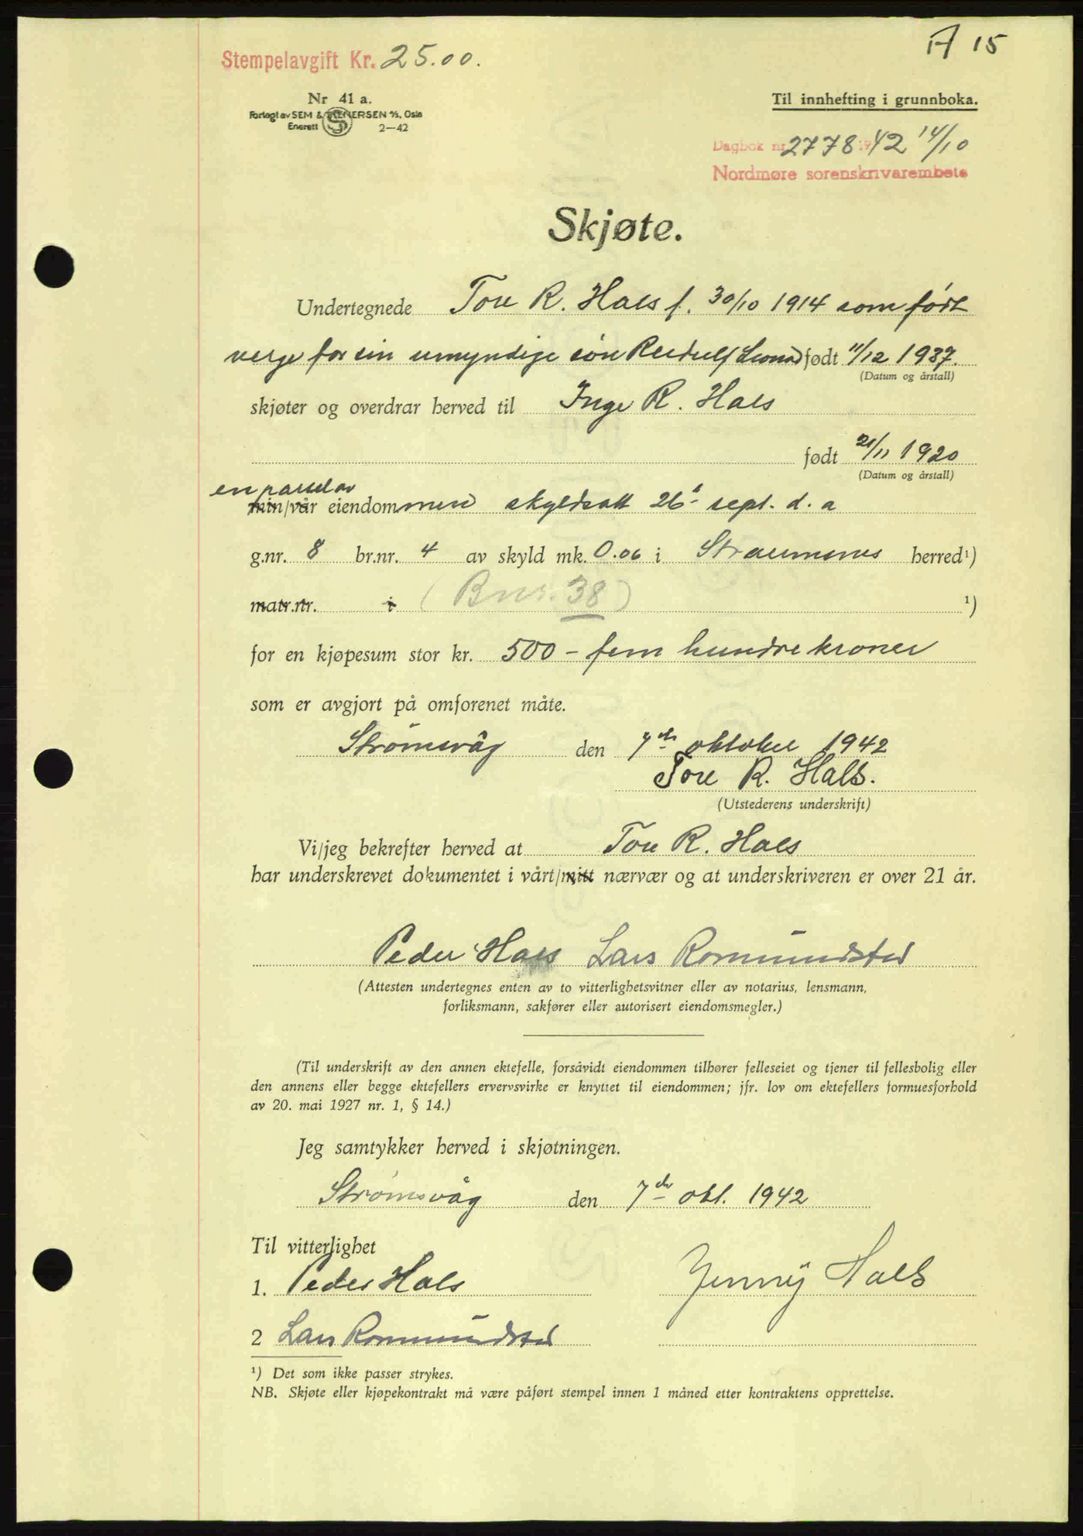 A 15
Stempelavgift Kr. 25.00.
Nr 41 a.
Forlagt av SEM & STENERSEN A/S, Oslo
Enerett 2-42
Til innhefting i grunnboka.
Dagbok nr. 2778 1942 14/10
Nordmøre sorenskrivarembete
Skjøte.
Undertegnede Tore R. Hals f. 30/10 1914 som født
verge for sin umyndige søn født 11/12 1937.
(Datum og årstall)
skjøter og overdrar herved til Inge R. Hals
født 21/11 1920
(Datum og årstall)
en parsel av
min/vår eiendommen skyldsatt 26 sept. d. a
g.nr. 8 br.nr. 4 av skyld mk. 0.06 i Straumsnes herred¹)
matr.nr. i (Bnr. 38) ¹)
for en kjøpesum stor kr. 500 - fem hundre kroner
som er avgjort på omforenet måte.
Strømsvåg den 7de oktober 1942
Tore R. Hals.
(Utstederens underskrift)
Vi/jeg bekrefter herved at Tore R. Hals
har underskrevet dokumentet i vårt/mitt nærvær og at underskriveren er over 21 år.
Peder Hals Lars Romundstad
(Attesten undertegnes enten av to vitterlighetsvitner eller av notarius, lensmann,
forliksmann, sakfører eller autorisert eiendomsmegler.)
(Til underskrift av den annen ektefelle, forsåvidt eiendommen tilhører felleseiet og tjener til fellesbolig eller
den annens eller begge ektefellers ervervsvirke er knyttet til eiendommen; jfr. lov om ektefellers formuesforhold
av 20. mai 1927 nr. 1, § 14.)
Jeg samtykker herved i skjøtningen.
Strømsvåg den 7de okt. 1942
Til vitterlighet
1. Peder Hals Jenny Hals
2 Lars Romundstad
¹) Det som ikke passer strykes.
NB. Skjøte eller kjøpekontrakt må være påført stempel innen 1 måned etter kontraktens opprettelse.